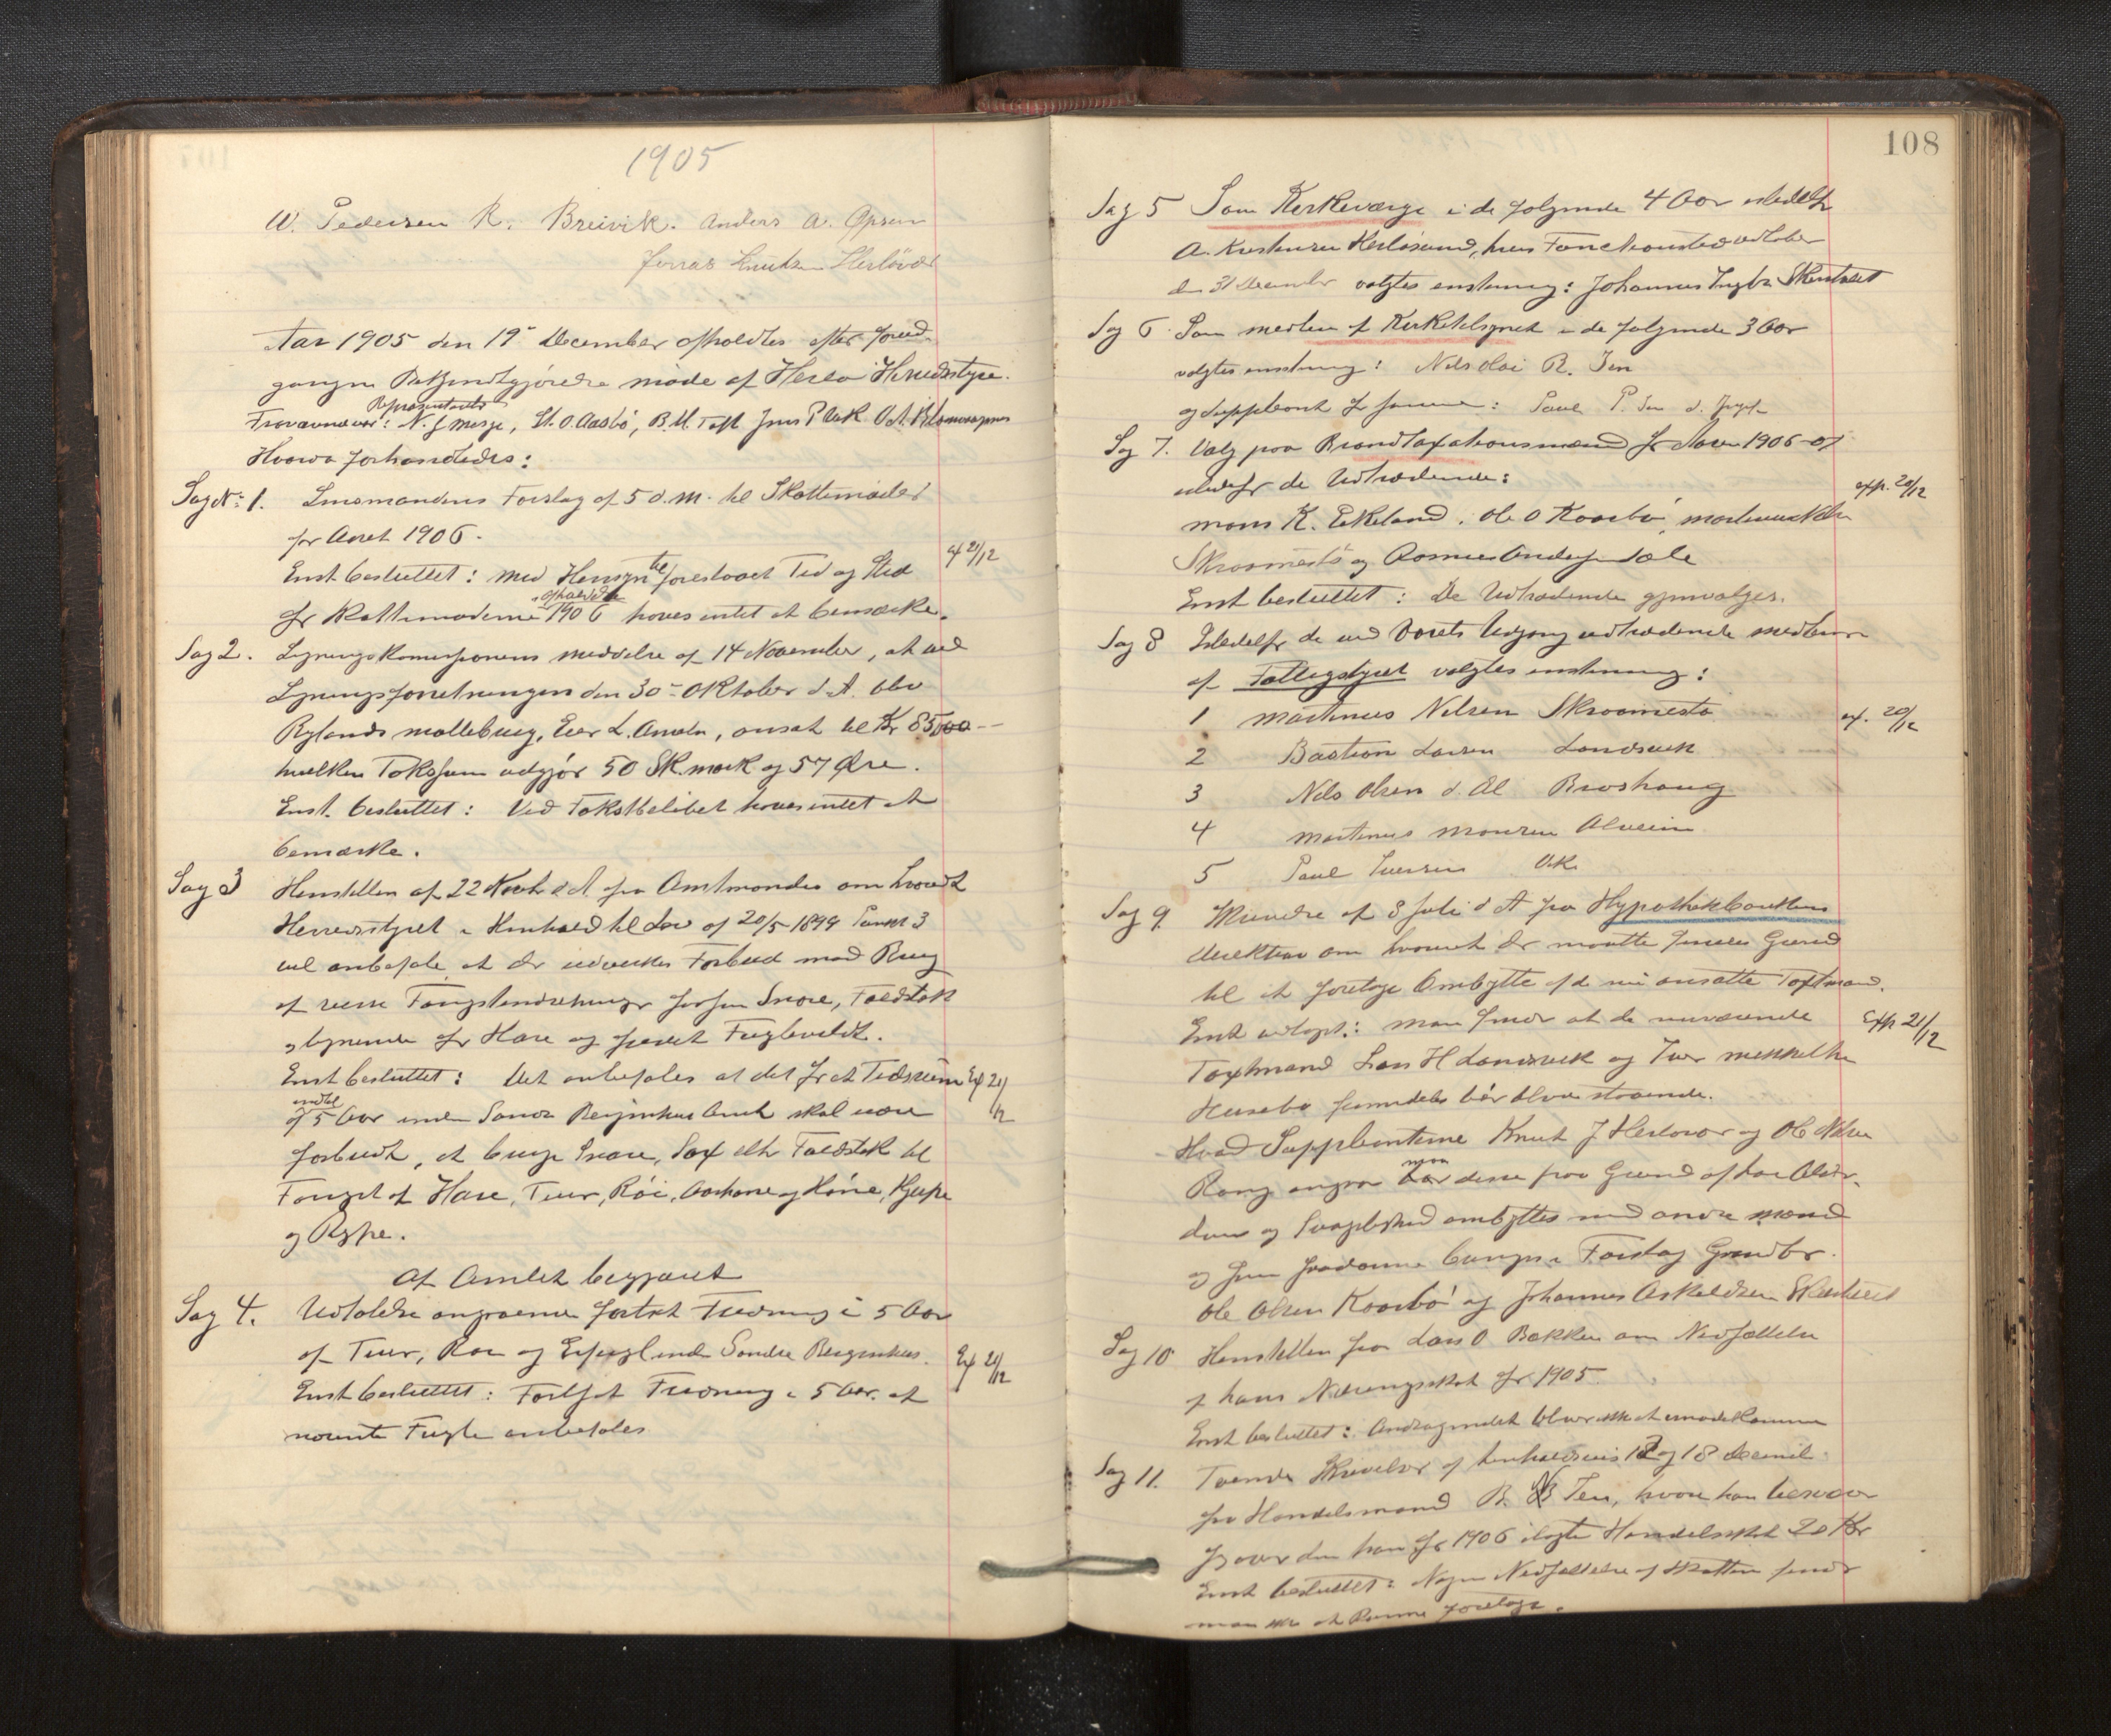 1905
W. Pedersen R. Breivik. Anders A. Opsen
Jonas Knutsen Herløvær
Aar 1905 den 19de December afholdtes efter forud-
gangen Bekjendtgjørelse møde af Herlø Herredsstyre.
Repræsentanter
Fraværende var: N. J. Marøe, St. O. Aasbø, B. M. Toft Jens P Vik O. A. Blomvaagnes
Hvorda forhandledes:
Sag No: 1. Lensmandens Forslag af 5 d. M. til Skattemøder
for Aaret 1906.
Enst. besluttet: med Hensyn til foreslaaet Tid og Sted
ex 21/12
afholdelse
for Skattemøderne 1906 haves intet at bemærke.
Sag 2. Ligningskomissionens meddelse af 14 November, at ved
Ligningsforretningen den 30- Oktober d. A. blev
Rylands møllebrug, Eier L. Ameln, ansat til Kr 85000-
hvilken Takstsum udgjør 50 Sk.mark og 57 Øre.
Enst. besluttet: Ved Takstbeløbet haves intet at
bemærke.
Sag 3 Henstillen af 22 Novb. d A fra Amtmanden om hvorvidt
Herredsstyret i Henhold til Lov af 20/5 1899 Punkt 3
vil anbefale, at der udvirkes Forbud mod Brug
af visse Fangstindretninger saasom Snare, Faldstok
og lignende for Hare og fredet Fuglevildt.
Enst besluttet: Det anbefales at det for et Tidsrum
Ex 21/12
indtil
af 5 Aar inden Søndre Bergenhus Amt skal være
forbudt, at bruge Snare, Sax eller Faldstok til
Fangst af Hare, Tiur, Røi, Aarhane og Høne, Hjerpe
og Rype.
Af Amtet begjæret
Sag 4. Udtalelse angaaende fortsat Fredning i 5 Aar
af Tiur, Røi og inden Søndre Bergenhus.
Ex 21/12
Enst besluttet: Fortsat Fredning i 5 Aar. af
nævnte Fugle anbefales
108
Sag 5 Som Kirkeværge i de følgende 4 Aar istedetfor
A. Kristensen Herløsund, hvis Funcktionstid udløber
den 31 December valgtes enstemmig: Johannes Skurtveit
Sag 6. Som medlem af Kirketilsynet i de følgende 3 Aar
valgtes enstemmig: Nils Olai R. Ten
og Suppleant for samme: Paul P. Ten d. Yngste
Sag 7. Valg paa Brandtaxationsmænd for Aaren 1906-07
istedetfor de Udtrædende:
exp. 20/12
Mons K. Eikeland, Ole O Kaarbø, Martinus Nilsen
Skraamestø og Rasmus Andersen Dale
Enst besluttet: De Udtrædende gjenvalges.
Sag 8 Istedetfor de ved Aarets Udgang udtrædende medlemmer
af Fattigstyret valgtes enstemmig:
1 Martinus Nilsen Skraamestø
ex. 20/12
2 Bastian Larsen Landsvik
3 Nils Olsen d. Æl Brushaug
4 Martinus Monsen Alveim
5 Paul Iversen Vik
Sag 9. Skrivelse af 8 Juli d A fra Hypothekbankens
direktion om hvorvidt der maatte findes Grund
til at foretage Ombytte af de nu ansatte Taxtmænd.
Enst vedtaget: man finder at de nuværende
Exp 21/12
Taxtmænd Lars H Landsvik og Iver Mikkelsen
Husebø fremdeles bør blive staaende.
Hvad Suppleanterne Knut J Herløvær og Ole Nilsen
maa
Rong angaar bør disse paa Grund af høi Alder-
dom og Svagelighed ombyttes med andre mænd
og som saadanne bringes i Forslag Grandbr.
Ole Olsen Kaarbø og Johannes Askeldsen Skurtveit
Sag 10 Henstillen fra Lars O Bakken om Nedsættelse
af hans Næringsskat for 1905.
Enst besluttet: Andragendet blev ikke at imødekomme
Sag 11. Tvende Skrivelser af henholdsvis 12 og 18 decemb.
fra Handelsmand B. N Ten, hvori han besværer
sig over den ham for 1906 ilagte Handelsskat 20 Kr
Enst besluttet: Nogen Nedsættelse af Skatten finder
man ikke at kunne foretage.